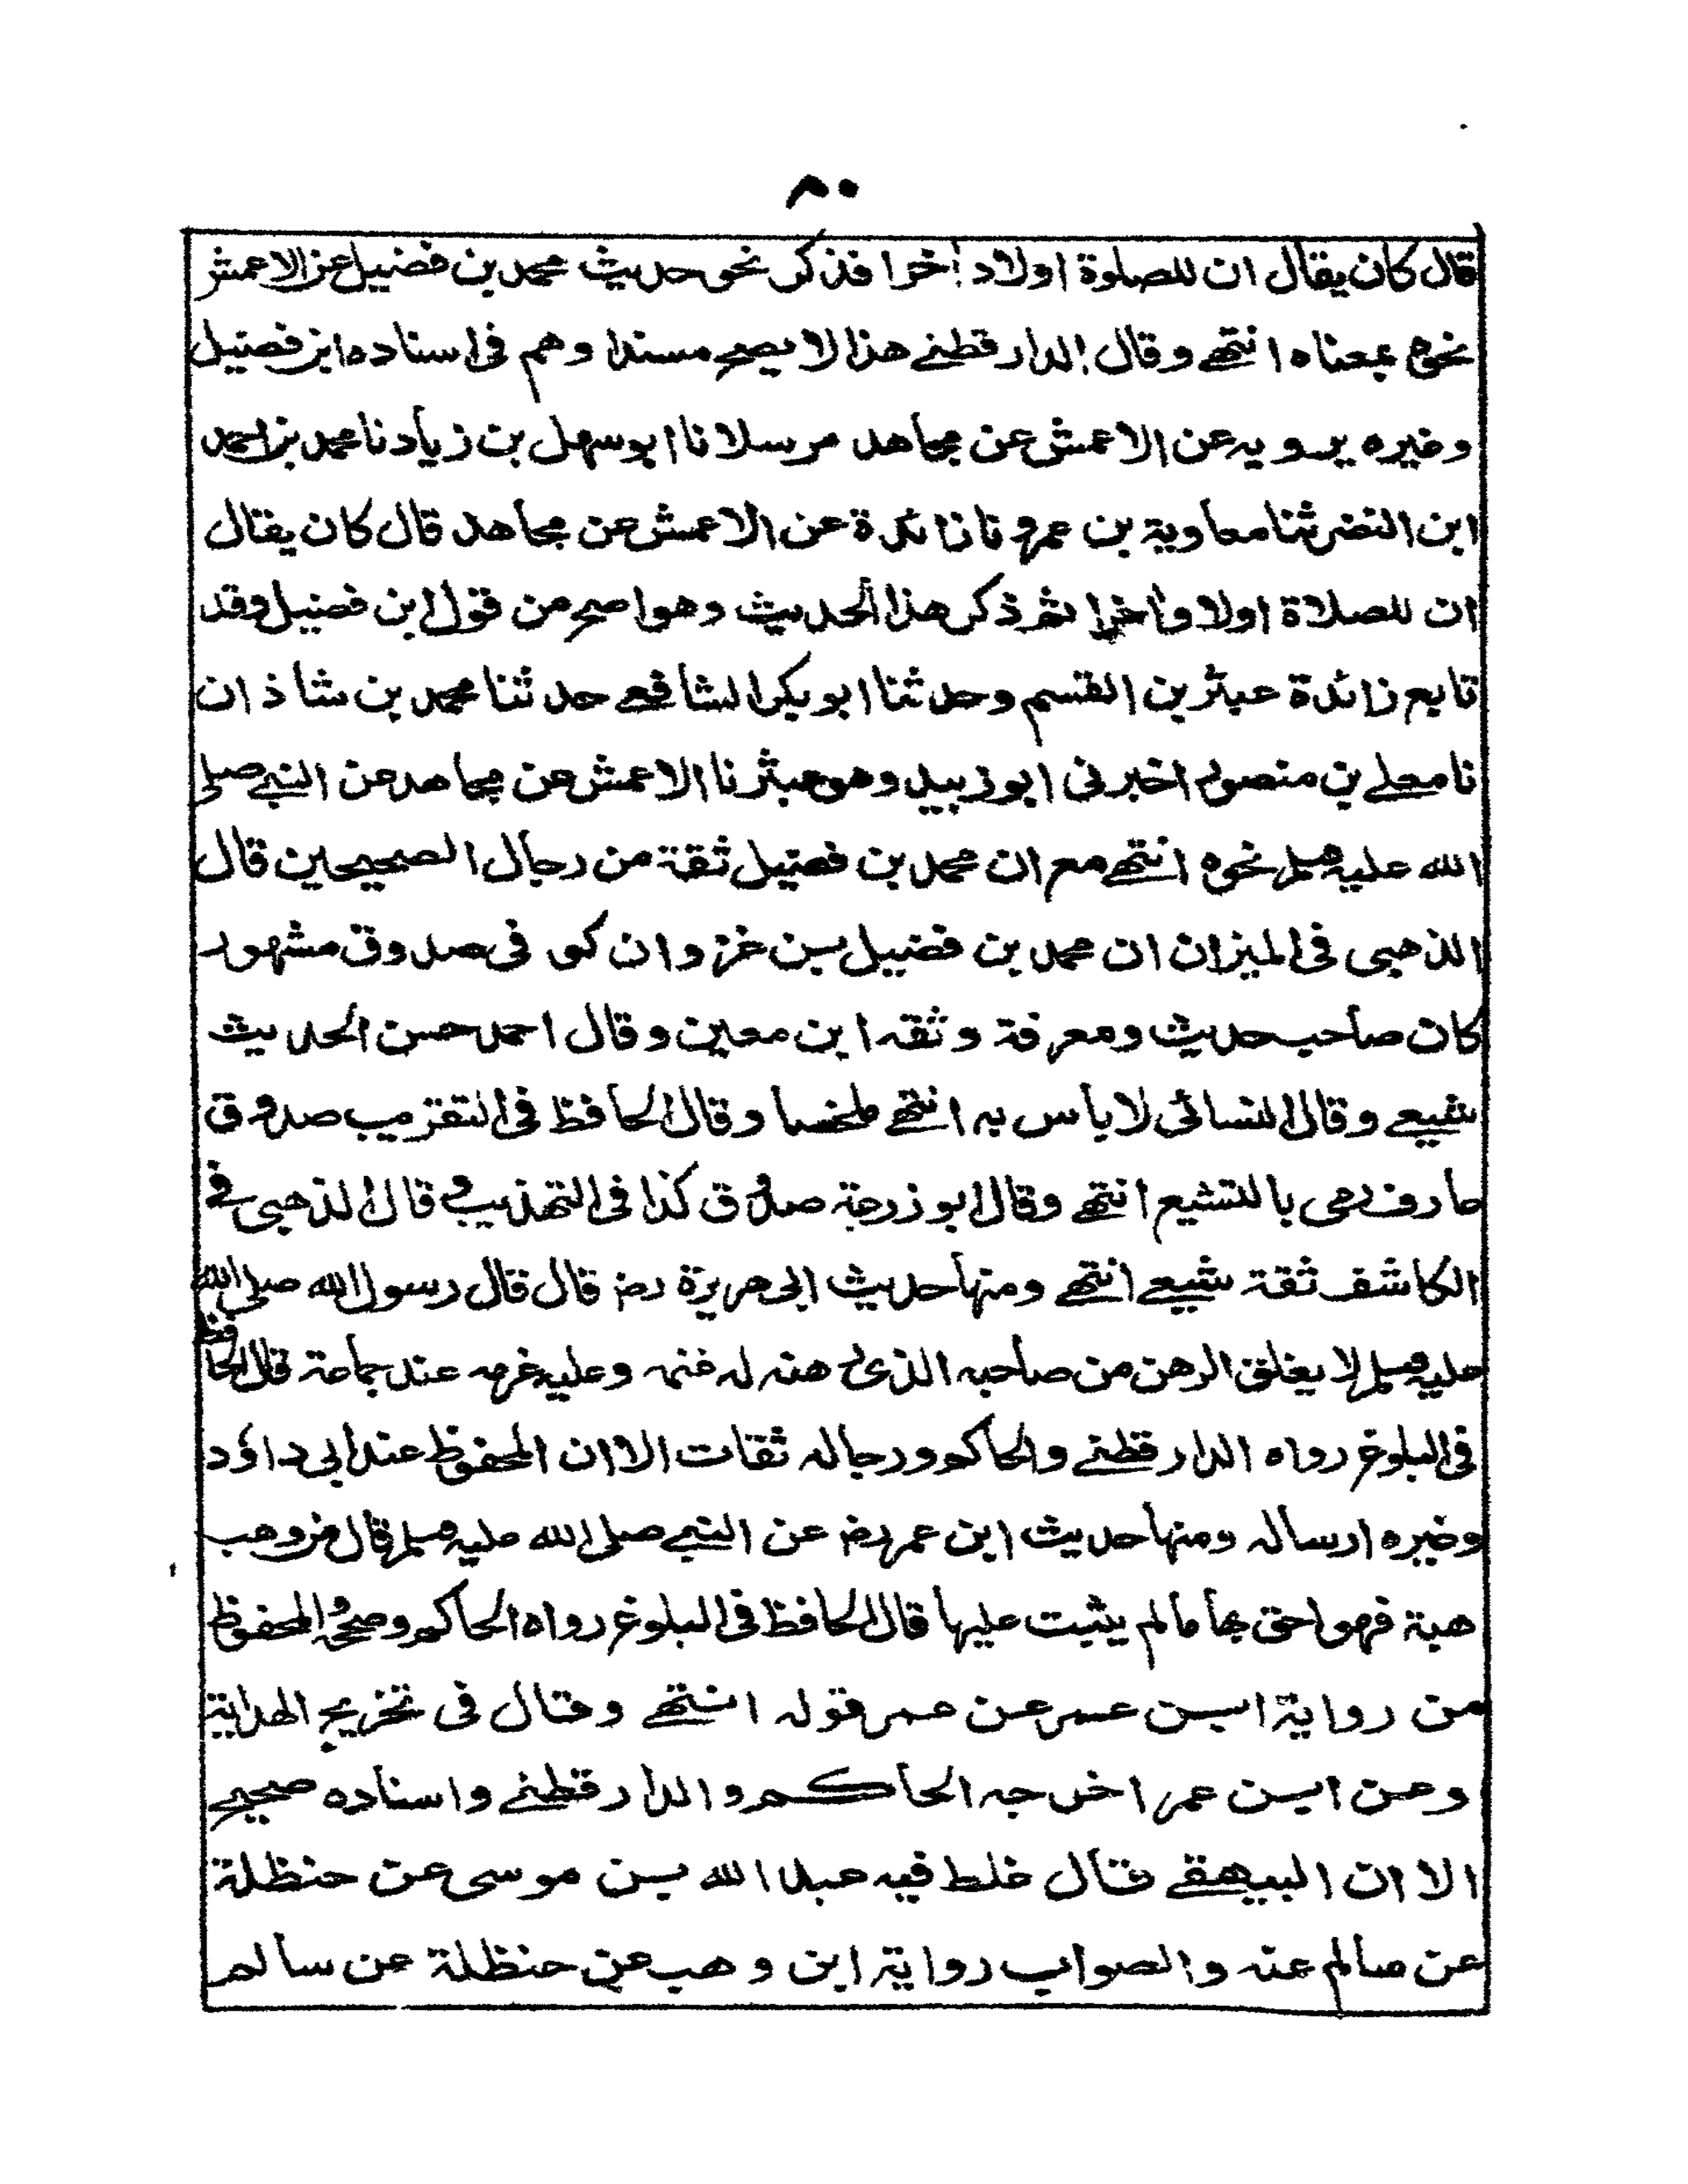 ٨٠
قال كان يقال ان للصلوة اولاد اخرا فذكر نحو حديث محمد بن فضيل عن الاعمش
نحوه بمعناه انتهے وقال الدارقطنے هذا لا يصح مسندا وهم فى اسناده ابن فضيل
وغيره يرويه عن الاعمش عن مجاهد مرسلا نا ابو سهل بن زياد نا محمد بن احمد
ابن النضر ثنا معاوية بن عمرو نا زائدة عن الاعمش عن مجاهد قال كان يقال
ان للصلاة اولا واخرا ثم ذكر هذا الحديث وهو اصح من قول ابن فضيل وقد
تابع زائدة عبثر بن القسم وحدثنا ابو بكر الشافعے حدثنا محمد بن شاذان
نا معلے بن منصور اخبرنى ابو زبيد وهو عبثر نا الاعمش عن مجاهد عن النبے صلى
الله عليه وسلم نحوه انتهے مع ان محمد بن فضيل ثقة من رجال الصحيحين قال
الذهبى فى الميزان ان محمد بن فضيل بن غزوان كو فى صدوق مشهور
كان صاحب حديث ومعرفة وثقه ابن معين وقال احمد حسن الحديث
شيعے وقال النسائى لا بأس به انتهے ملخصا وقال الحافظ فى التقريب صدوق
عارف رمى بالتشيع انتهے وقال ابو زرعة صدوق كذا فى التهذيب و قال الذهبى فے
الكاشف ثقة شيعے انتهے ومنها حديث ابى هريرة رض قال قال رسول الله صلى الله
عليه وسلم لا يغلق الرهن من صاحبه الذى رهنه له غنمه وعليه غرمه عند جماعة قال الحافظ
فى البلوغ رواه الدارقطنے والحاكم ورجاله ثقات الا ان المحفوظ عند ابى داؤد
وغيره ارساله ومنها حديث ابن عمر رض عن النبے صلى الله عليه وسلم قال من وهب
هبة فهو احق بها ما لم يثبت عليها قال الحافظ فى البلوغ رواه الحاكم وصححه والمحفوظ
من رواية ابن عمر عن عمر قوله انتهے وقال فى تخريج الهداية
وعن ابن عمر اخرجه الحاكم والدارقطنے واسناده صحيح
الا ان البيهقے قال غلط فيه عبد الله بن موسى عن حنظلة
عن سالم عنه والصواب رواية ابن وهب عن حنظلة عن سالم